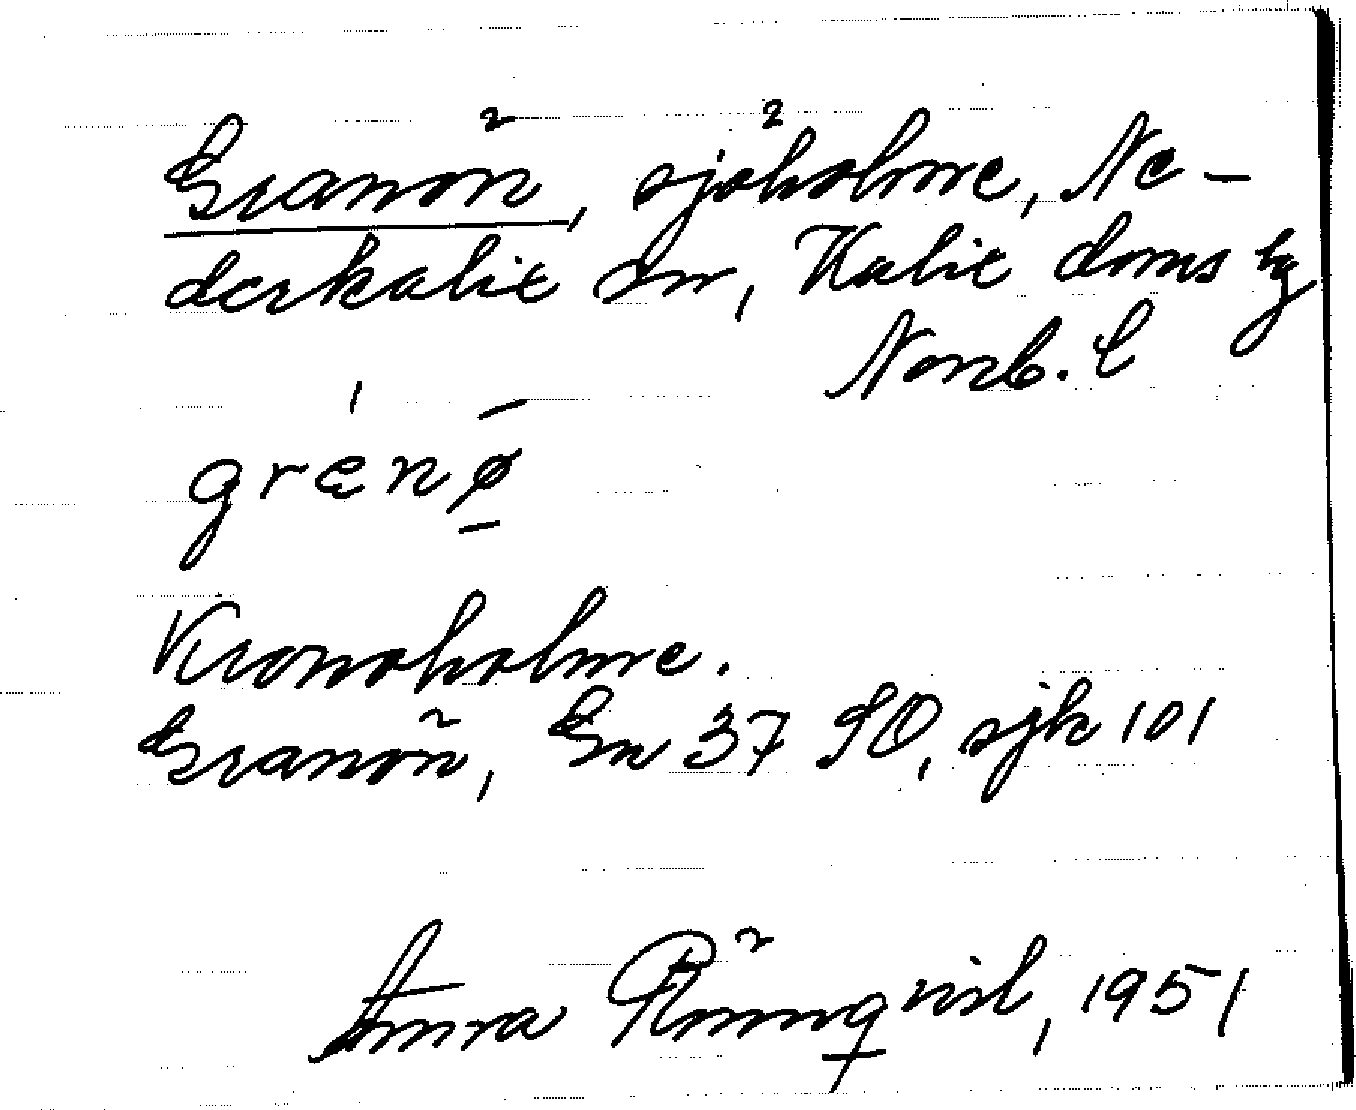 Granön, sjöholme, Ne-
derkalix sn, Kalix doms hg
Norrb. l
grænø
Kronoholme.
Granön, Gn 37 SO, sjk 101
Anna Rönnqvist, 1951